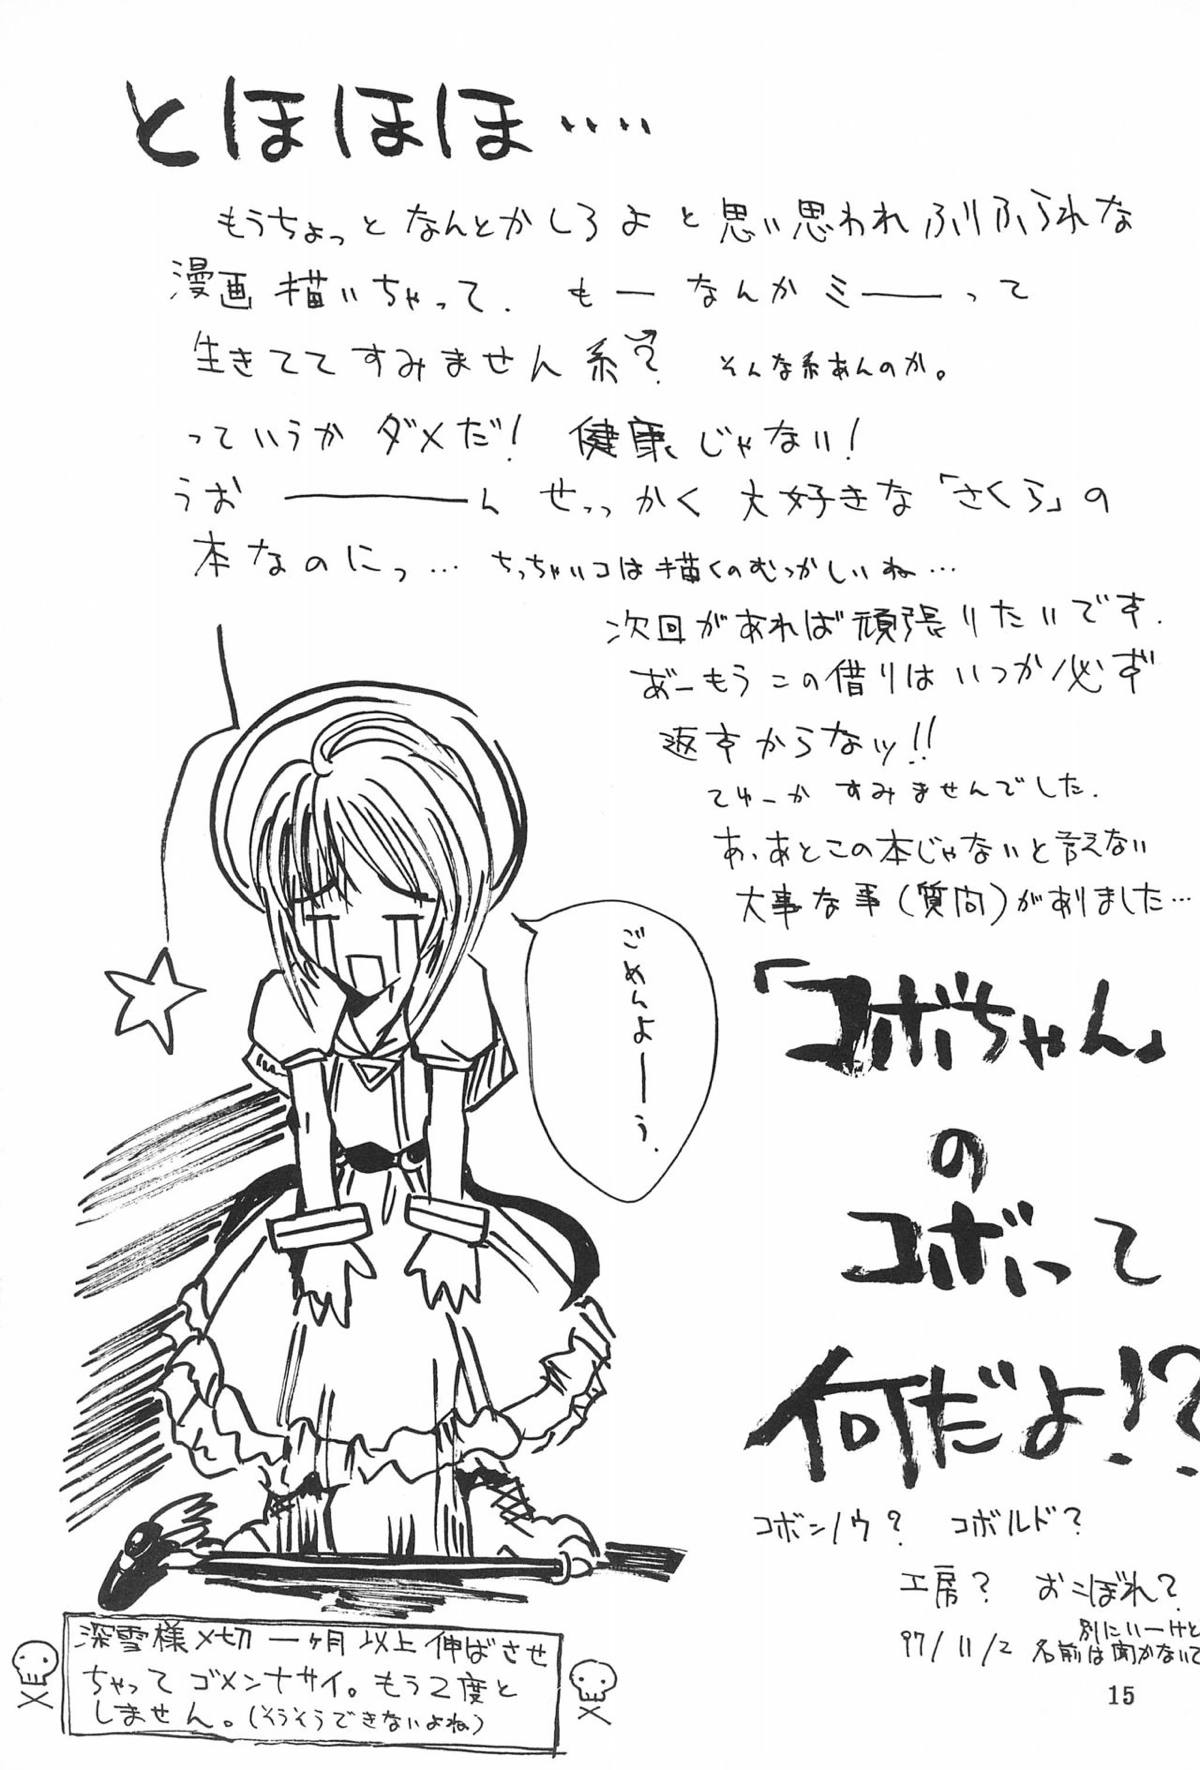 とほほほ‥‥
もうちょっとなんとかしろよと思い思われふりふられな
漫画描いちゃって. もーなんかミーーって
生きててすみません系? そんな系あんのか。
っていうかダメだ! 健康じゃない!
うおーーーーん せっかく大好きな「さくら」の
本なのにっ… ちっちゃいコは描くのむつかしいね…
次回があれば頑張りたいです.
あーもうこの借りはいつか必ず
返すからなッ!!
てゆーかすみませんでした.
あ、あとこの本じゃないと言えない
大事な事(質問)がありました…
ごめんよーーう.
「コボちゃん」
の
コボって
何だよ!?
コボンノウ? コボルド?
工房? おこぼれ?
別にいーけと
97/11/2 名前は聞かないて
深雪様〆切一ヶ月以上伸ばさせ
ちゃってゴメンナサイ。もう2度と
しません。(そうそうできないよね)
15